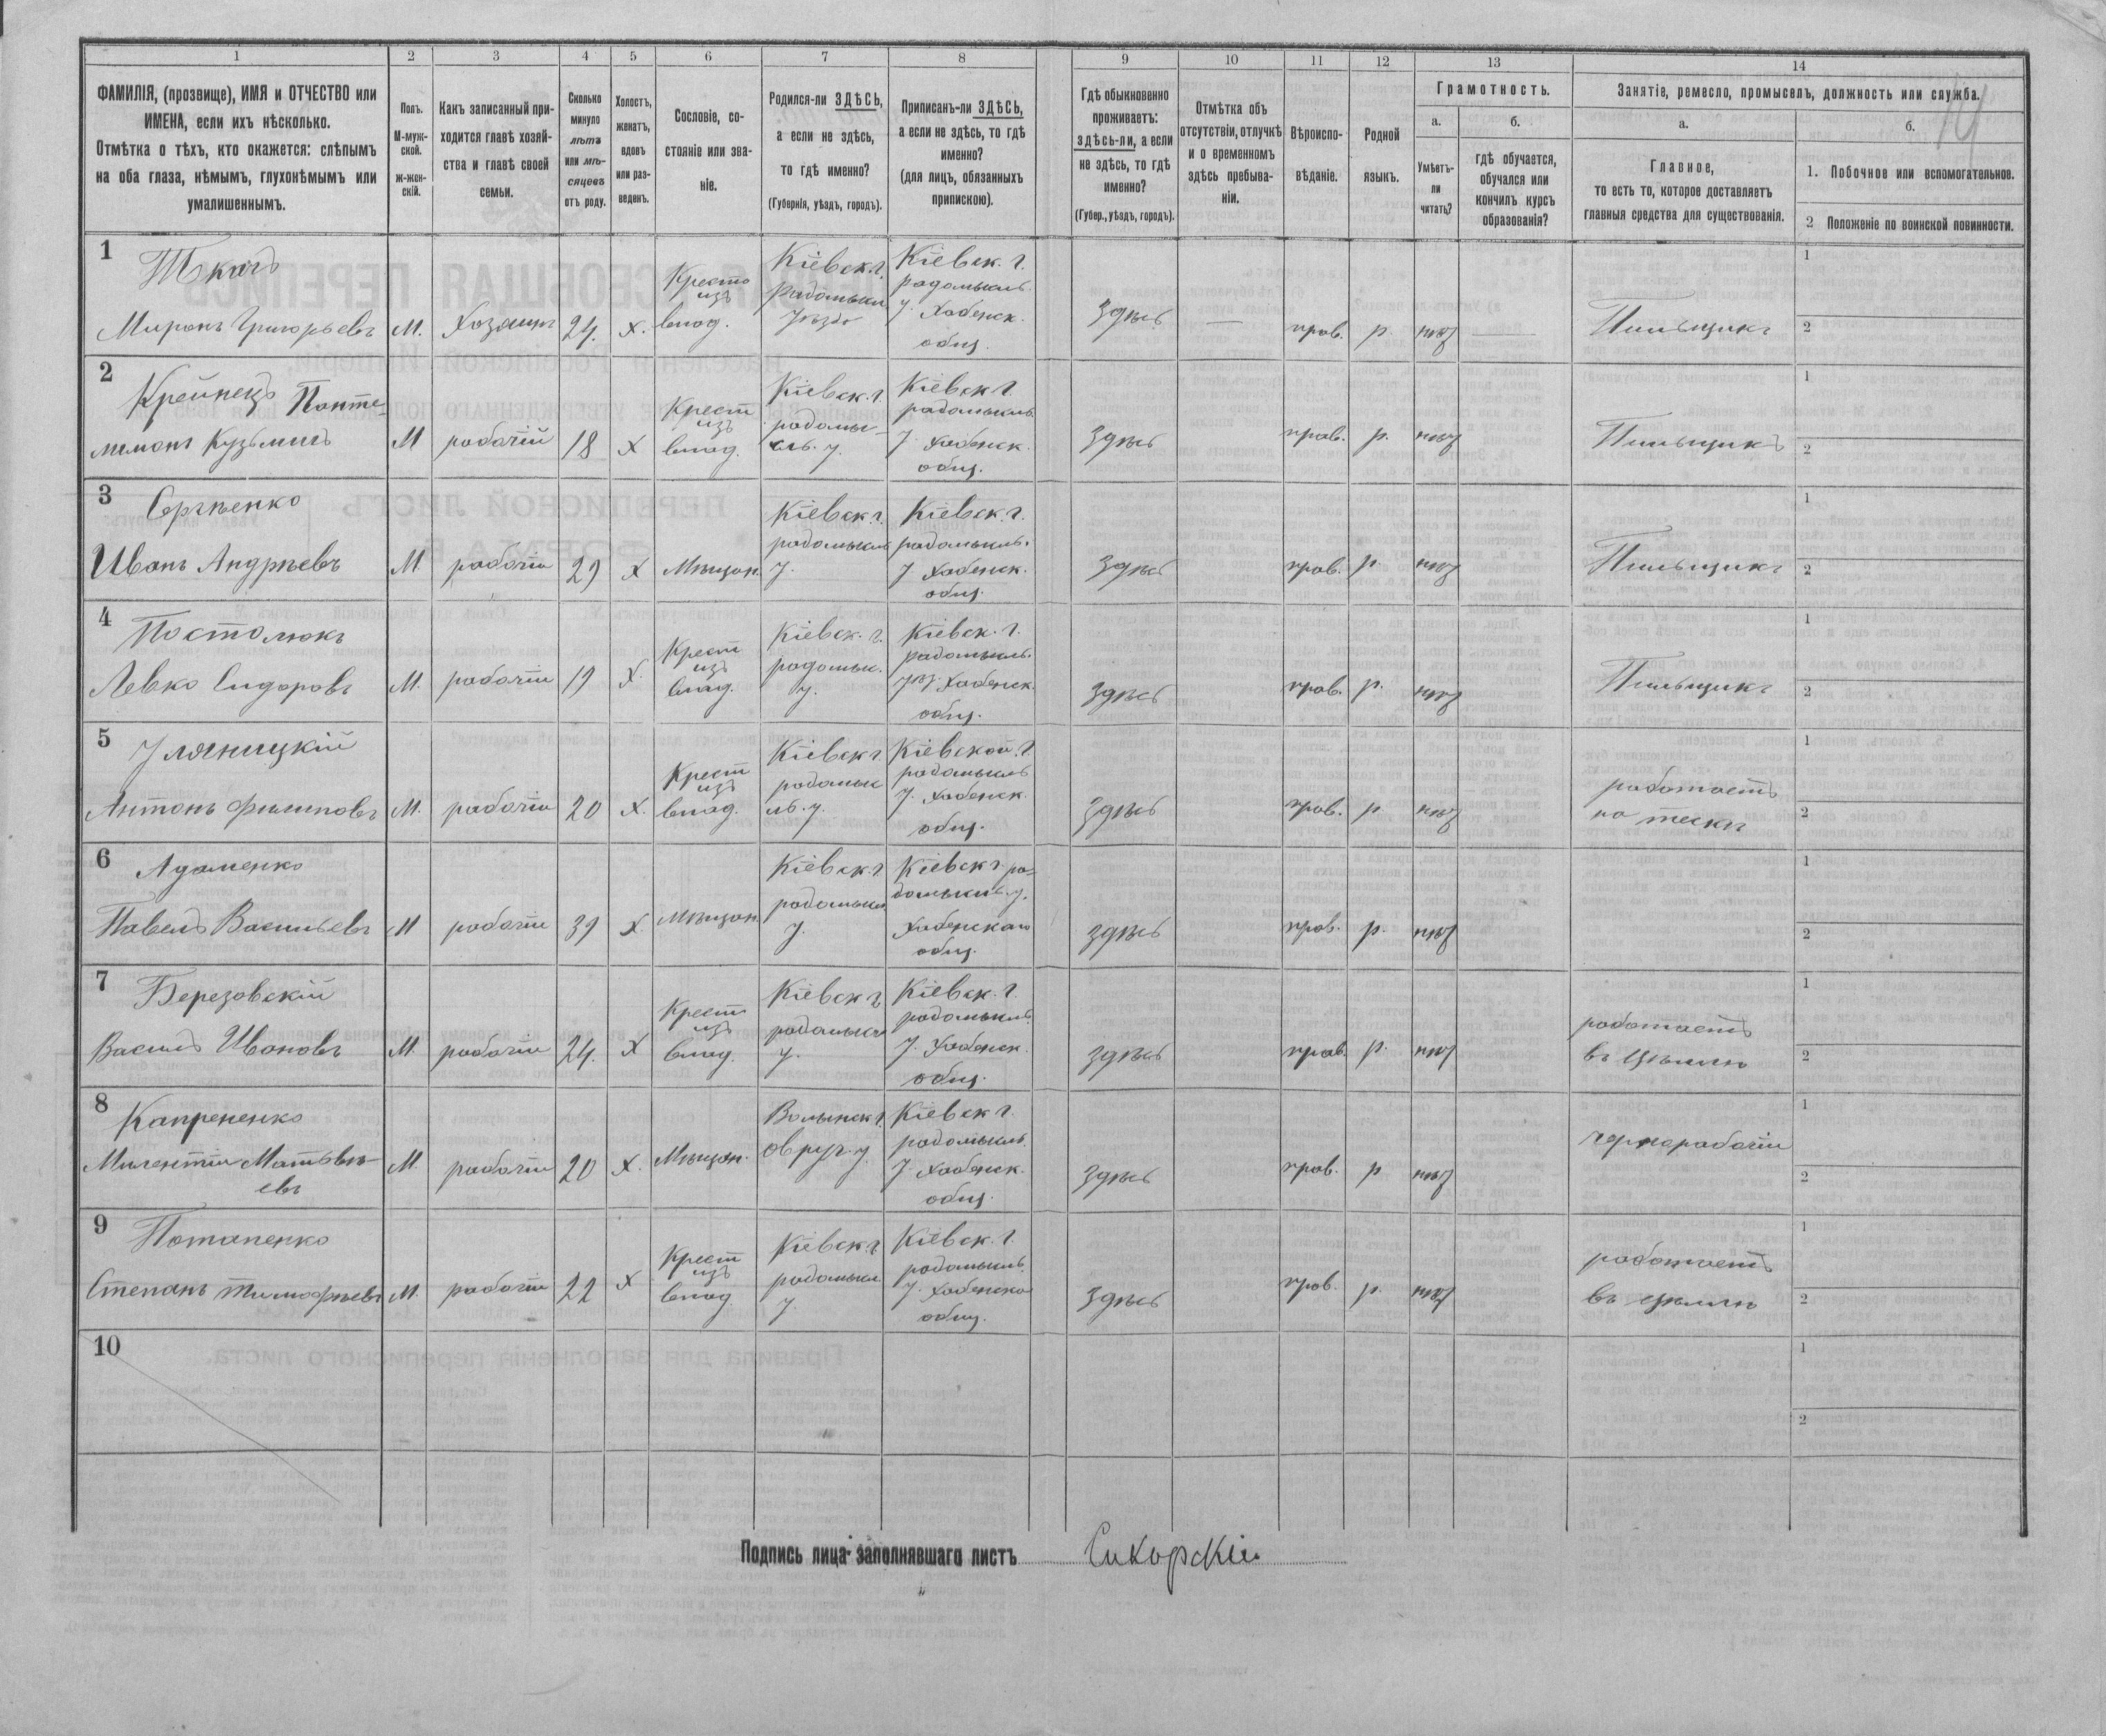 1 2 3 4 5 6 7 8 9 10 11 12 13 14
ФАМИЛІЯ, (прозвище), ИМЯ и ОТЧЕСТВО или
ИМЕНА, если ихъ нѣсколько.
Отмѣтка о тѣхъ, кто окажется: слѣпымъ
на оба глаза, нѣмымъ, глухонѣмымъ или
умалишеннымъ.
Полъ.
М-муж-
ской.
ж-жен-
скій.
Какъ записанный при-
ходится главѣ хозяй-
ства и главѣ своей
семьи.
Сколько
минуло
лѣтъ
или мѣ-
сяцевъ
отъ роду.
Холостъ,
женатъ,
вдовъ
или раз-
веденъ.
Сословіе, со-
стояніе или зва-
ніе.
Родился-ли ЗДѢСЬ,
а если не здѣсь,
то гдѣ именно?
(Губернія, уѣздъ, городъ).
Приписанъ-ли ЗДѢСЬ,
а если не здѣсь, то гдѣ
именно?
(для лицъ, обязанныхъ
припискою).
Гдѣ обыкновенно
проживаетъ:
здѣсь-ли, а если
не здѣсь, то гдѣ
именно?
(Губер., уѣздъ, городъ).
Отмѣтка объ
отсутствіи, отлучкѣ
и о временномъ
здѣсь пребыва-
ніи.
Вѣроиспо-
вѣданіе.
Родной
языкъ.
Грамотность.
а.
Умѣетъ-
ли
читать?
б.
гдѣ обучается,
обучался или
кончилъ курсъ
образованія?
Занятіе, ремесло, промыселъ, должность или служба.
а.
Главное,
то есть то, которое доставляетъ
главныя средства для существованія.
б.
1. Побочное или вспомогательное.
2 Положеніе по воинской повинности.
14
1
Ткачъ
Миронъ Григорьевъ
М.
Хозяинъ
24.
х.
Кресть
изъ
влад.
Кіевск. г.
Радомысл
Уѣздъ
Кіевск. г.
радомысль.
у. Хабенск.
общ.
Здѣсь
—
прав.
р.
нѣт
Пильщикъ
1
2
2
Крейнецъ Панте-
лимонъ Кузьмичъ
М
рабочій
18
Х
Крест
изъ
влад.
Кіевск. г.
радомы-
сль. у.
Кіевск г.
радомысль
у. Хабенск.
общ.
Здѣсь
прав.
р.
нѣт
Пильщикъ
1
2
3
Сергѣенко
Иванъ Андрѣевъ
М.
рабочій
29
Х
Мѣщан.
Кіевск. г.
радомысль
у.
Кіевск. г.
радомысль.
у. Хабенск.
общ.
Здѣсь
прав.
р
нѣт
Пильщикъ
1
2
4
Постолюкъ
Левко Сидоровъ
М.
рабочій
19
Х.
Крест
изъ
влад.
Кіевск. г.
радомыс.
у.
Кіевск. г.
радомысль.
уѣз. Хабенск.
общ.
Здѣсь
прав.
р.
нѣт
Пильщикъ
1
2
5
Уляницкій
Антонъ Филиповъ
М.
рабочій
20
Х.
Крест
изъ
влад.
Кіевск г
радомыс
ль. у.
Кіевской. г
радомысль
у. Хабенск.
общ.
Здѣсь
прав.
р
нѣт
работаетъ
на
1
2
6
Адаменко
Павелъ Васильевъ
М
рабочій
39
Х
Мѣщан.
Кіевск. г
радомысл
у.
Кіевск г. ра-
домысль. у.
Хабенскаго
общ.
Здѣсь
прав.
р.
нѣт
1
2
7
Березовскій
Василь Ивановъ
М.
рабочій
24.
Х
Крест
изъ
влад.
Кіевск г.
радомысл
у.
Кіевск. г.
радомысль
у. Хабенск.
общ.
Здѣсь
прав.
р.
нѣт
работаетъ
въ
1
2
8
Капрененко
Милентій Матвѣ-
евъ
М.
рабочій
20
Х.
Мѣщан.
Волынск г.
Овруч. у.
Кіевск г.
радомысль.
у. Хабенск.
общ.
Здѣсь
прав.
р
нѣт
чернорабочій
1
2
9
Потапенко
Степанъ Тимофѣевъ
М.
рабочій
22
Х
Крест
изъ
влад
Кіевск. г
радомысл
у.
Кіевск. г.
радомысль.
у. Хабенско
общ.
Здѣсь
прав.
р.
нѣт
работаетъ
въ
1
2
10
1
2
Подпись лица заполнявшаго листъ Сикорскій